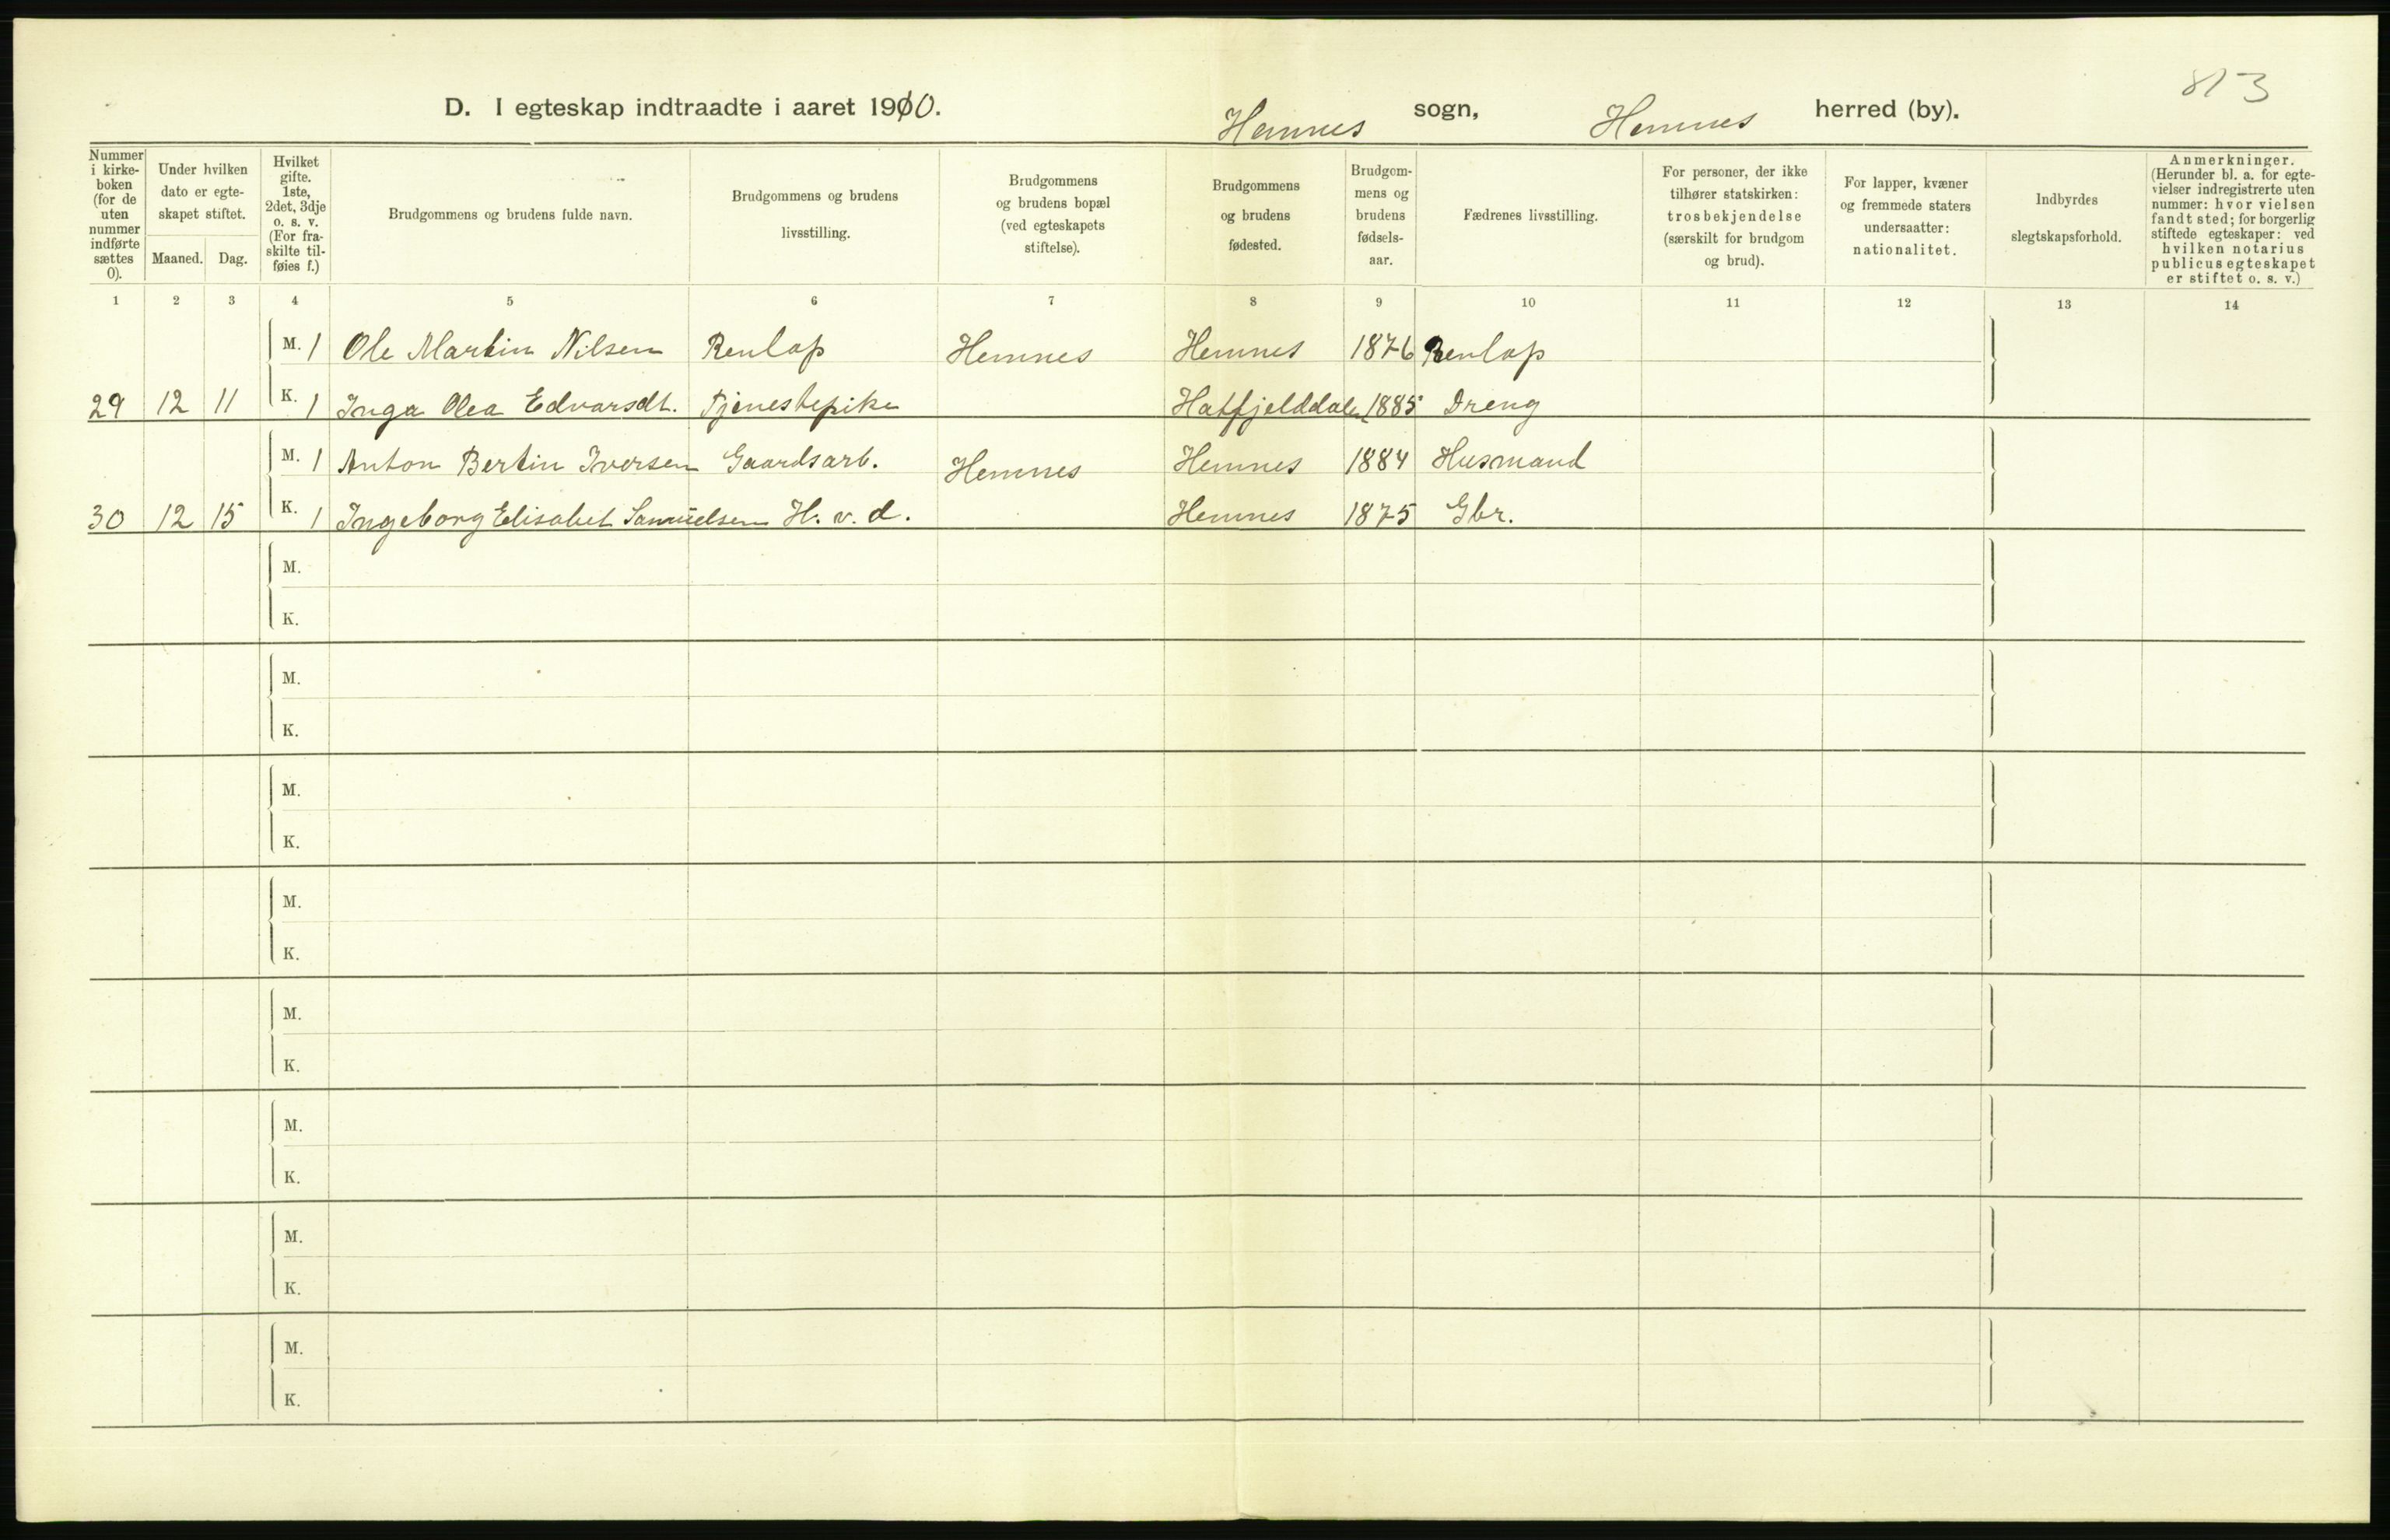 813
D. I egteskap indtraadte i aaret 1910. Hemnes sogn, Hemnes herred (by).
Nummer i kirke-boken (for de uten nummer indførte sættes 0).
Under hvilken dato er egte-skapet stiftet.
Maaned. Dag.
Hvilket gifte. 1ste, 2det, 3dje o. s. v. (For fra-skilte til-føies f.)
Brudgommens og brudens fulde navn.
Brudgommens og brudens livsstilling.
Brudgommens og brudens bopæl (ved egteskapets stiftelse).
Brudgommens og brudens fødested.
Brudgom-mens og brudens fødsels-aar.
Fædrenes livsstilling.
For personer, der ikke tilhører statskirken: trosbekjendelse (særskilt for brudgom og brud).
For lapper, kvæner og fremmede staters undersaatter: nationalitet.
Indbyrdes slegtskapsforhold.
Anmerkninger. (Herunder bl. a. for egte-vielser indregistrerte uten nummer: hvor vielsen fandt sted; for borgerlig stiftede egteskaper: ved hvilken notarius publicus egteskapet er stiftet o. s. v.)
1 2 3 4 5 6 7 8 9 10 11 12 13 14
M. 1 Ole Martin Nilsen Renlap Hemnes Hemnes 1876 Renlap
29 12 11 K. 1 Inga Olea Edvarsdt. Tjenestepike Hatfjelddalen 1885 Dreng
M. 1 Anton Bertin Iversen Gaardsarb. Hemnes Hemnes 1884 Husmand
30 12 15 K. 1 Ingeborg Elisabet Samuelsen H. v. d. Hemnes 1875 Gbr.
M.
K.
M.
K.
M.
K.
M.
K.
M.
K.
M.
K.
M.
K.
M.
K.